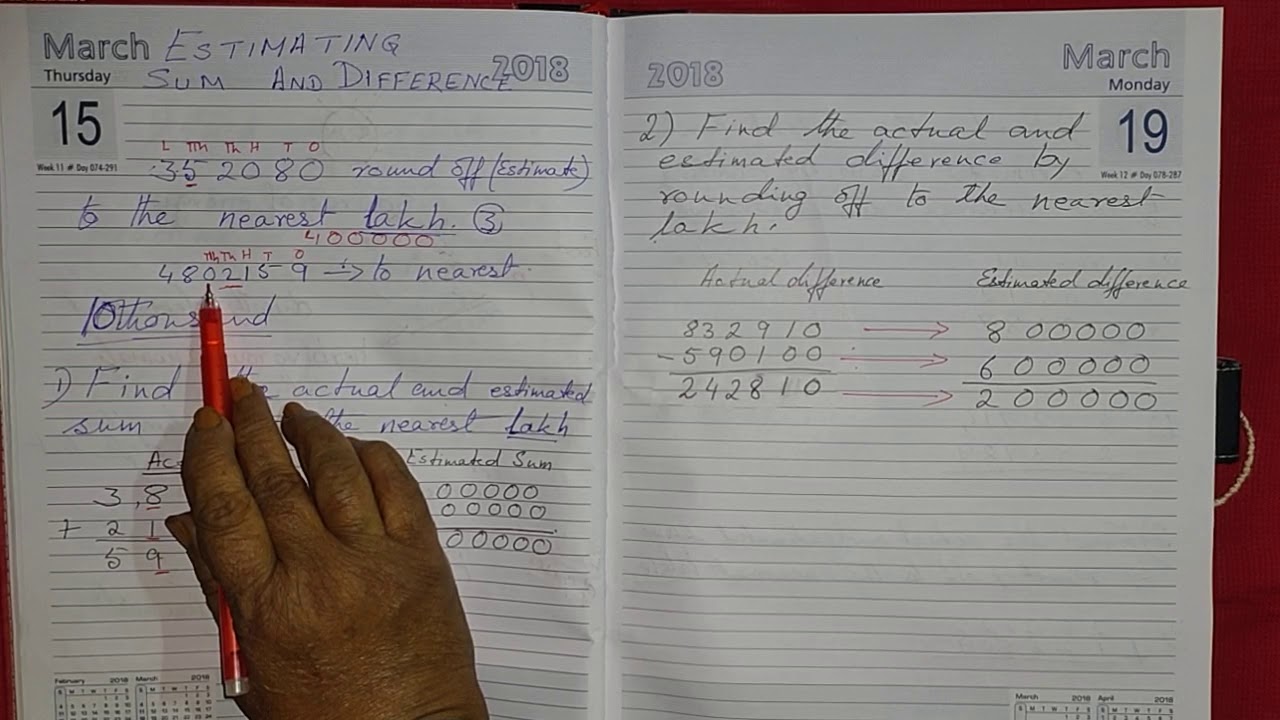 March ESTIMATING
Thursday SUM AND DIFFERENCE 2018
15
Week 11 # Day 074-291
L TTh Th H T O
352080 round off (Estimate)
to the nearest lakh. ③
400000
TTh Th H T O
4802159 → to nearest
10thousand
1) Find the actual and estimated
sum the nearest lakh
Estimated Sum
3,8 00000
+ 21 00000
59 00000
February 2018 March 2018
2018 March
Monday
19
Week 12 # Day 078-287
2) Find the actual and
estimated difference by
rounding off to the nearest
lakh.
Actual difference Estimated difference
832910 → 800000
-590100 → 600000
242810 → 200000
March 2018 April 2018